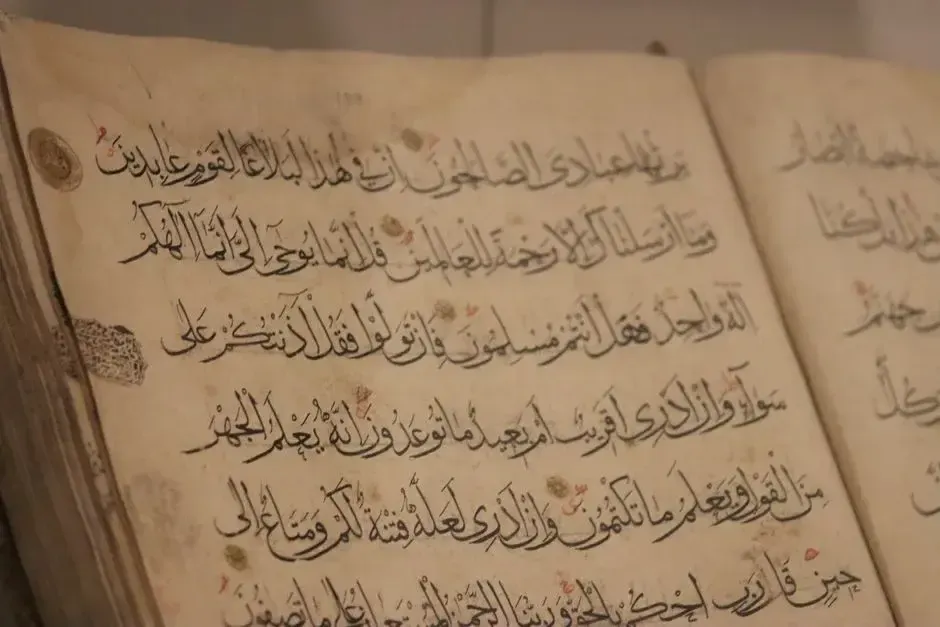 شاخصة ابصار
كنا
جهنم
وكل
يرثها عبادى الصالحون ان في هذا لبلاغا لقوم عابدين
وما ارسلناك الا رحمة للعالمين قل انما يوحى الى انما الهكم
اله واحد فهل انتم مسلمون فان تولوا فقل آذنتكم على
سوآء وان ادرى اقريب ام بعيد ما توعدون انه يعلم الجهر
من القول ويعلم ما تكتمون وان ادرى لعله فتنة لكم ومتاع الى
حين قال رب احكم بالحق وربنا الرحمن المستعان على ما تصفون